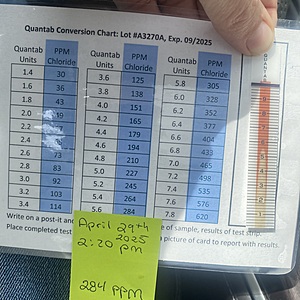 Quantab Conversion Chart: Lot #A3270A, Exp. 09/2025
Quantab Units PPM Chloride
1.4 30
1.6 36
1.8 43
2.0
2.2
2.4
2.6 73
2.8 83
3.0 92
3.2 103
3.4 114
Quantab Units PPM Chloride
3.6 125
3.8 138
4.0 151
4.2 165
4.4 179
4.6 194
4.8 210
5.0 227
5.2 245
5.4 264
5.6 284
Quantab Units PPM Chloride
5.8 305
6.0 328
6.2 352
6.4 377
6.6 404
6.8 433
7.0 465
7.2 498
7.4 535
7.6 576
7.8 620
Write on a post-it and of sample, results of test strip.
Place completed test a picture of card to report with results.
April 29th
2025
2:20 pm
284 PPM